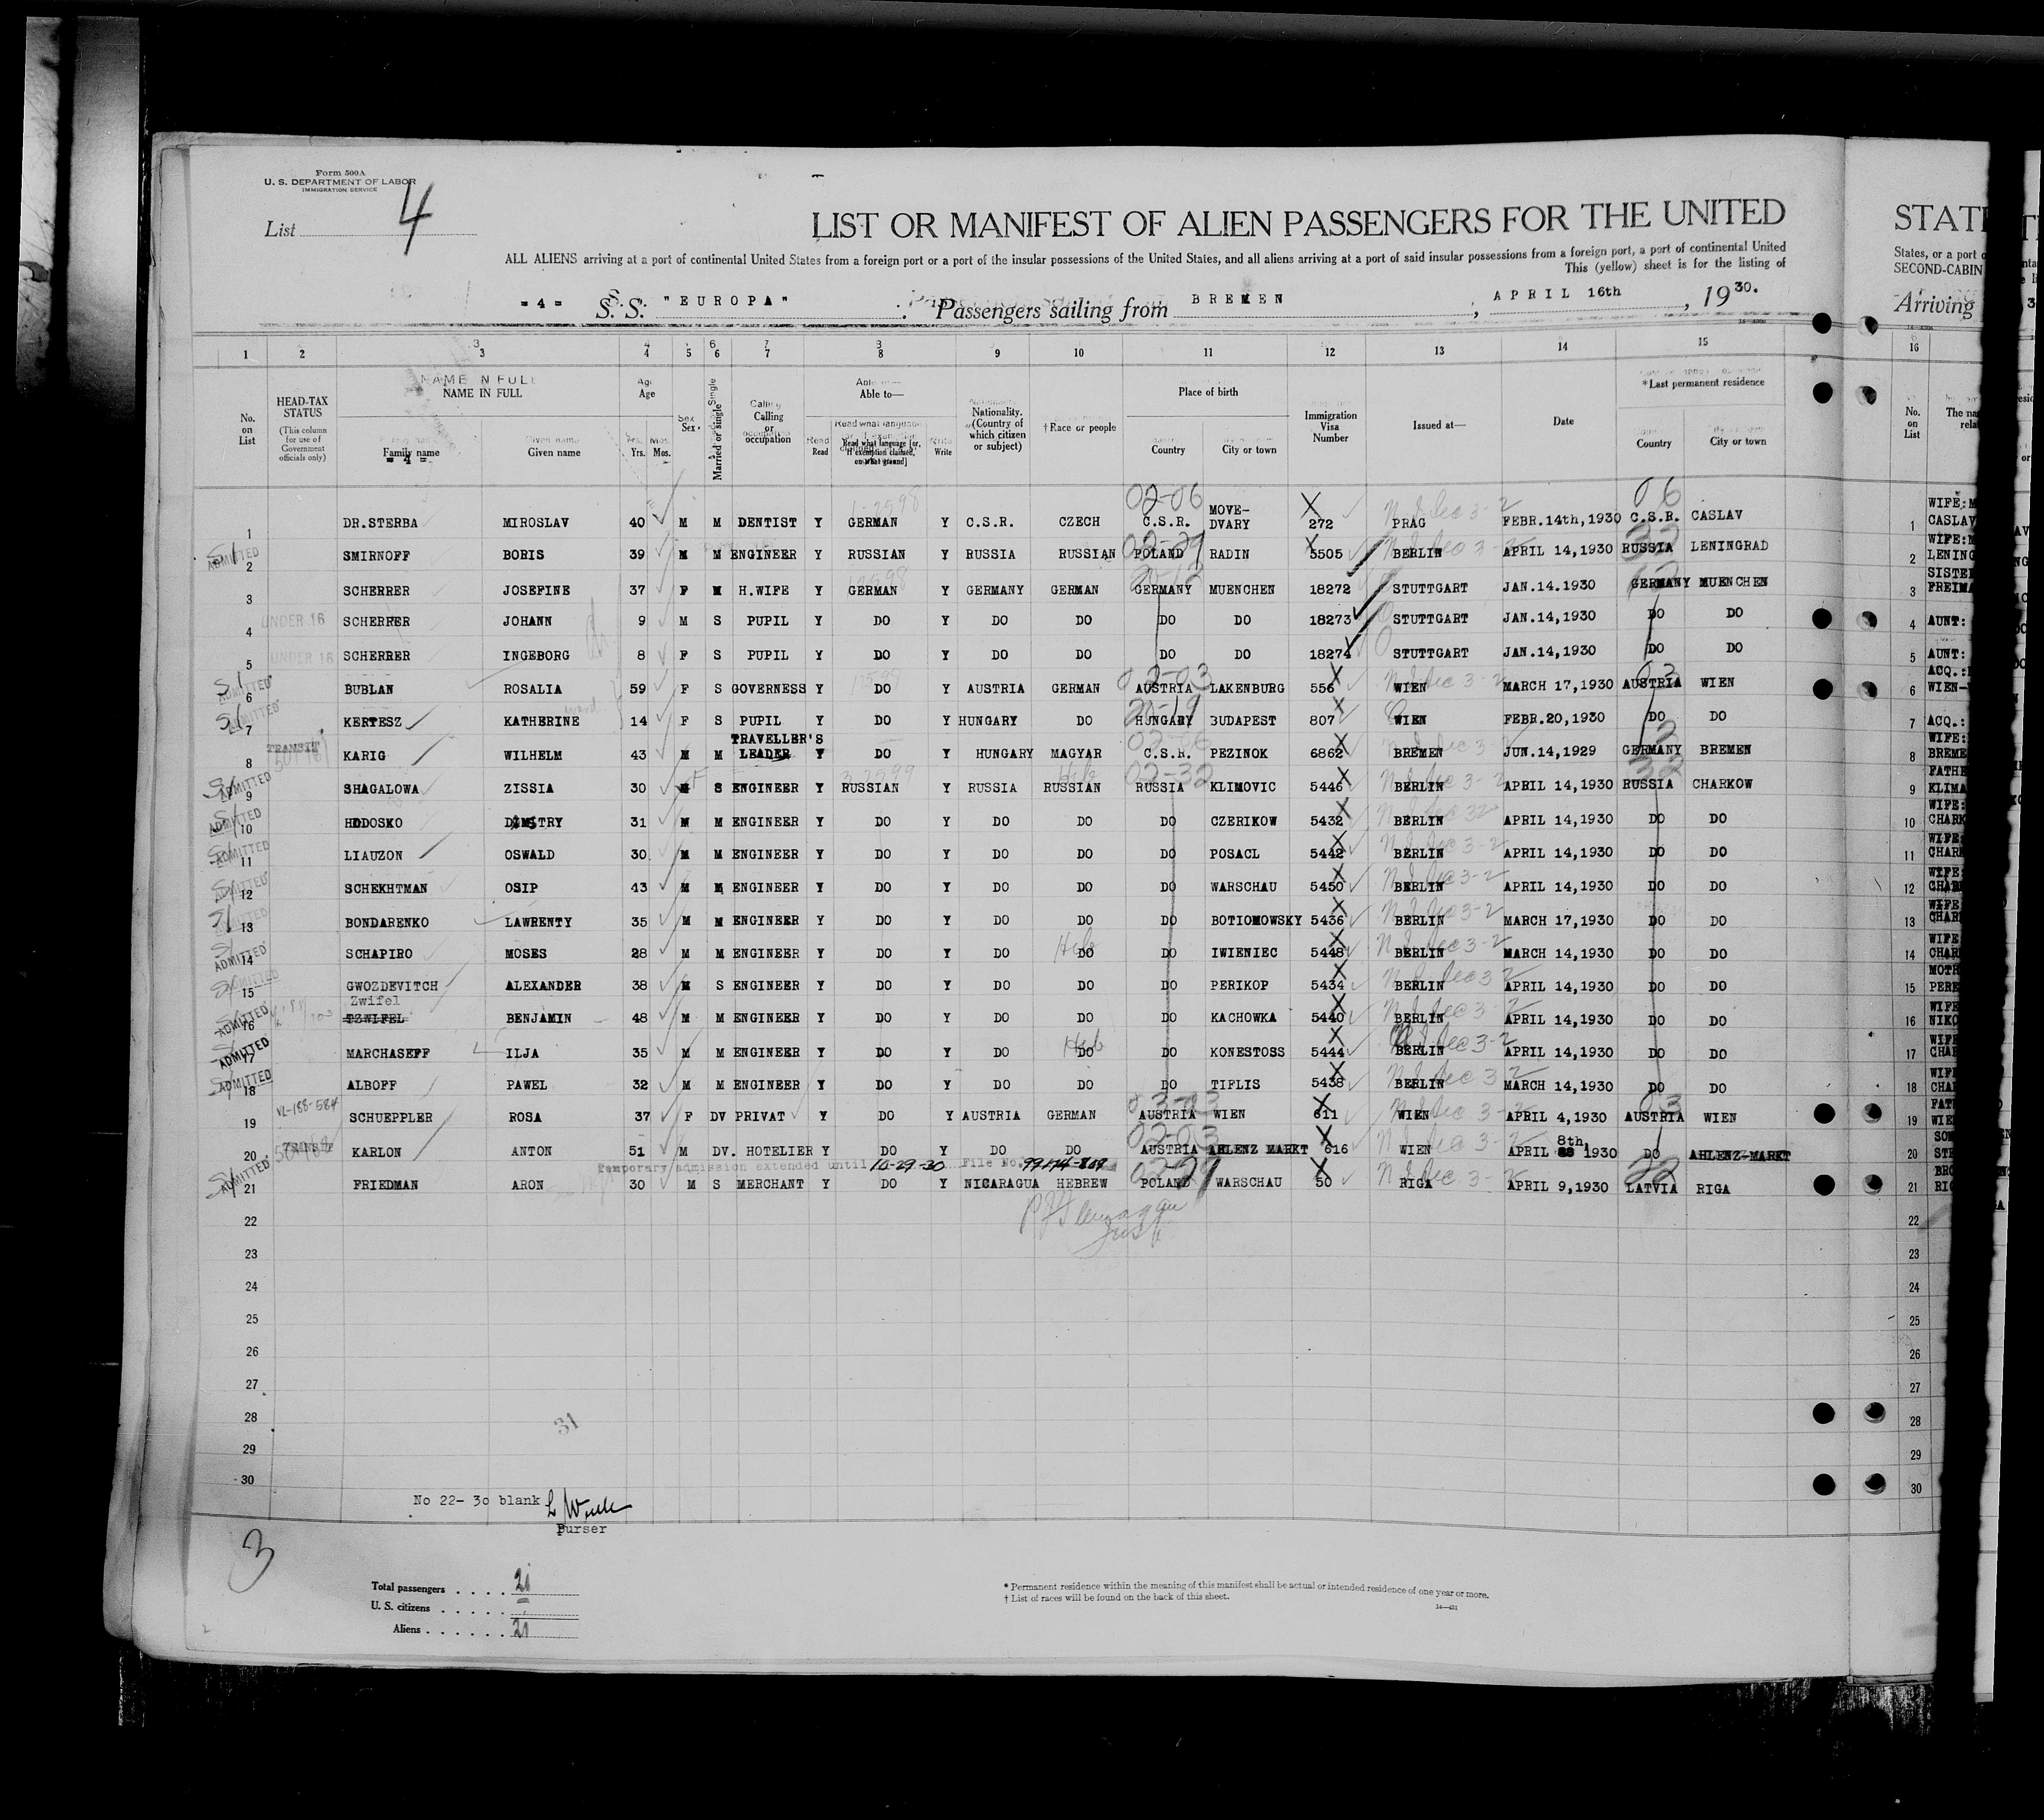 Form 500A
U. S. DEPARTMENT OF LABOR
IMMIGRATION SERVICE
List 4
LIST OR MANIFEST OF ALIEN PASSENGERS FOR THE UNITED
STAT
ALL ALIENS arriving at a port of continental United States from a foreign port or a port of the insular possessions of the United States, and all aliens arriving at a port of said insular possessions from a foreign port, a port of continental United
States, or a port
This (yellow) sheet is for the listing of
SECOND-CABIN
= 4 = S. S. "EUROPA" Passengers sailing from BREMEN, APRIL 16th, 1930.
Arriving
1 2 3 4 5 6 7 8 9 10 11 12 13 14 15 16
No. on List
HEAD-TAX STATUS (This column for use of Government officials only)
NAME IN FULL
Family name
= 4 =
Given name
Age
Yrs. Mos.
Sex
Married or single
Calling or occupation
Able to—
Read
Read what language [or, if exemption claimed, on what ground]
Write
Nationality. (Country of which citizen or subject)
†Race or people
Place of birth
Country
City or town
Immigration Visa Number
Issued at—
Date
*Last permanent residence
Country
City or town
No. on List
02-06 06
1 DR.STERBA MIROSLAV 40 M M DENTIST Y GERMAN Y C.S.R. CZECH C.S.R. MOVE-DVARY 272 PRAG FEBR.14th,1930 C.S.R. CASLAV 1 WIFE: CASLAV
ADMITTED 2 SMIRNOFF BORIS 39 M M ENGINEER Y RUSSIAN Y RUSSIA RUSSIAN POLAND RADIN 5505 BERLIN APRIL 14,1930 RUSSIA LENINGRAD 2 WIFE: LENING
3 SCHERRER JOSEFINE 37 F M H.WIFE Y GERMAN Y GERMANY GERMAN GERMANY MUENCHEN 18272 STUTTGART JAN.14.1930 GERMANY MUENCHEN 3 SISTE FREIM
UNDER 16 4 SCHERRER JOHANN 9 M S PUPIL Y DO Y DO DO DO DO 18273 STUTTGART JAN.14,1930 DO DO 4 AUNT:
UNDER 16 5 SCHERRER INGEBORG 8 F S PUPIL Y DO Y DO DO DO DO 18274 STUTTGART JAN.14,1930 DO DO 5 AUNT:
ADMITTED 6 BUBLAN ROSALIA 59 F S GOVERNESS Y DO Y AUSTRIA GERMAN AUSTRIA LAKENBURG 556 WIEN MARCH 17,1930 AUSTRIA WIEN 6 ACQ.: WIEN-
ADMITTED 7 KERTESZ KATHERINE 14 F S PUPIL Y DO Y HUNGARY DO HUNGARY BUDAPEST 807 WIEN FEBR.20,1930 DO DO 7 ACQ.:
TRANSIT 8 KARIG WILHELM 43 M M TRAVELLER'S LEADER Y DO Y HUNGARY MAGYAR C.S.R. PEZINOK 6862 BREMEN JUN.14,1929 GERMANY BREMEN 8 WIFE: BREME
ADMITTED 9 SHAGALOWA ZISSIA 30 F S ENGINEER Y RUSSIAN Y RUSSIA RUSSIAN Heb RUSSIA KLIMOVIC 5446 BERLIN APRIL 14,1930 RUSSIA CHARKOW 9 FATHE KLIMA
ADMITTED 10 HODOSKO DIMITRY 31 M M ENGINEER Y DO Y DO DO DO CZERIKOW 5432 BERLIN APRIL 14,1930 DO DO 10 WIFE: CHARK
ADMITTED 11 LIAUZON OSWALD 30 M M ENGINEER Y DO Y DO DO DO POSACL 5442 BERLIN APRIL 14,1930 DO DO 11 WIFE: CHAR
ADMITTED 12 SCHEKHTMAN OSIP 43 M M ENGINEER Y DO Y DO DO DO WARSCHAU 5450 BERLIN APRIL 14,1930 DO DO 12 WIFE: CHAR
13 BONDARENKO LAWRENTY 35 M M ENGINEER Y DO Y DO DO DO BOTIOMOWSKY 5436 BERLIN MARCH 17,1930 DO DO 13 WIFE CHAR
ADMITTED 14 SCHAPIRO MOSES 28 M M ENGINEER Y DO Y DO DO Heb DO IWIENIEC 5448 BERLIN MARCH 14,1930 DO DO 14 WIFE CHAR
ADMITTED 15 GWOZDEVITCH ALEXANDER 38 M S ENGINEER Y DO Y DO DO DO PERIKOP 5434 BERLIN APRIL 14,1930 DO DO 15 MOTH PERE
Zwifel
ADMITTED 16 TZWIFEL BENJAMIN 48 M M ENGINEER Y DO Y DO DO DO KACHOWKA 5440 BERLIN APRIL 14,1930 DO DO 16 WIFE NIKO
ADMITTED 17 MARCHASEFF ILJA 35 M M ENGINEER Y DO Y DO DO Heb DO KONESTOSS 5444 BERLIN APRIL 14,1930 DO DO 17 WIFE CHAR
ADMITTED 18 ALBOFF PAWEL 32 M M ENGINEER Y DO Y DO DO DO TIFLIS 5438 BERLIN MARCH 14,1930 DO DO 18 WIFE CHA
VL-188-584 19 SCHUEPPLER ROSA 37 F DV PRIVAT Y DO Y AUSTRIA GERMAN AUSTRIA WIEN 611 WIEN APRIL 4,1930 AUSTRIA WIEN 19 FAT WIE
TRANSIT 20 KARLON ANTON 51 M DV. HOTELIER Y DO Y DO DO AUSTRIA AHLENZ MARKT 616 WIEN APRIL 8th, 1930 DO AHLENZ-MARKT 20 SON STE
Temporary admission extended until 10-29-30 File No. 99174-809
ADMITTED 21 FRIEDMAN ARON 30 M S MERCHANT Y DO Y NICARAGUA HEBREW POLAND WARSCHAU 50 RIGA APRIL 9,1930 LATVIA RIGA 21 BRO RIG
22 22
23 23
24 24
25 25
26 26
27 27
28 28
31
29 29
30 30
No 22- 30 blank
Purser
3
Total passengers . . . . 21
U. S. citizens . . . . .
Aliens . . . . . . 21
* Permanent residence within the meaning of this manifest shall be actual or intended residence of one year or more.
† List of races will be found on the back of this sheet.